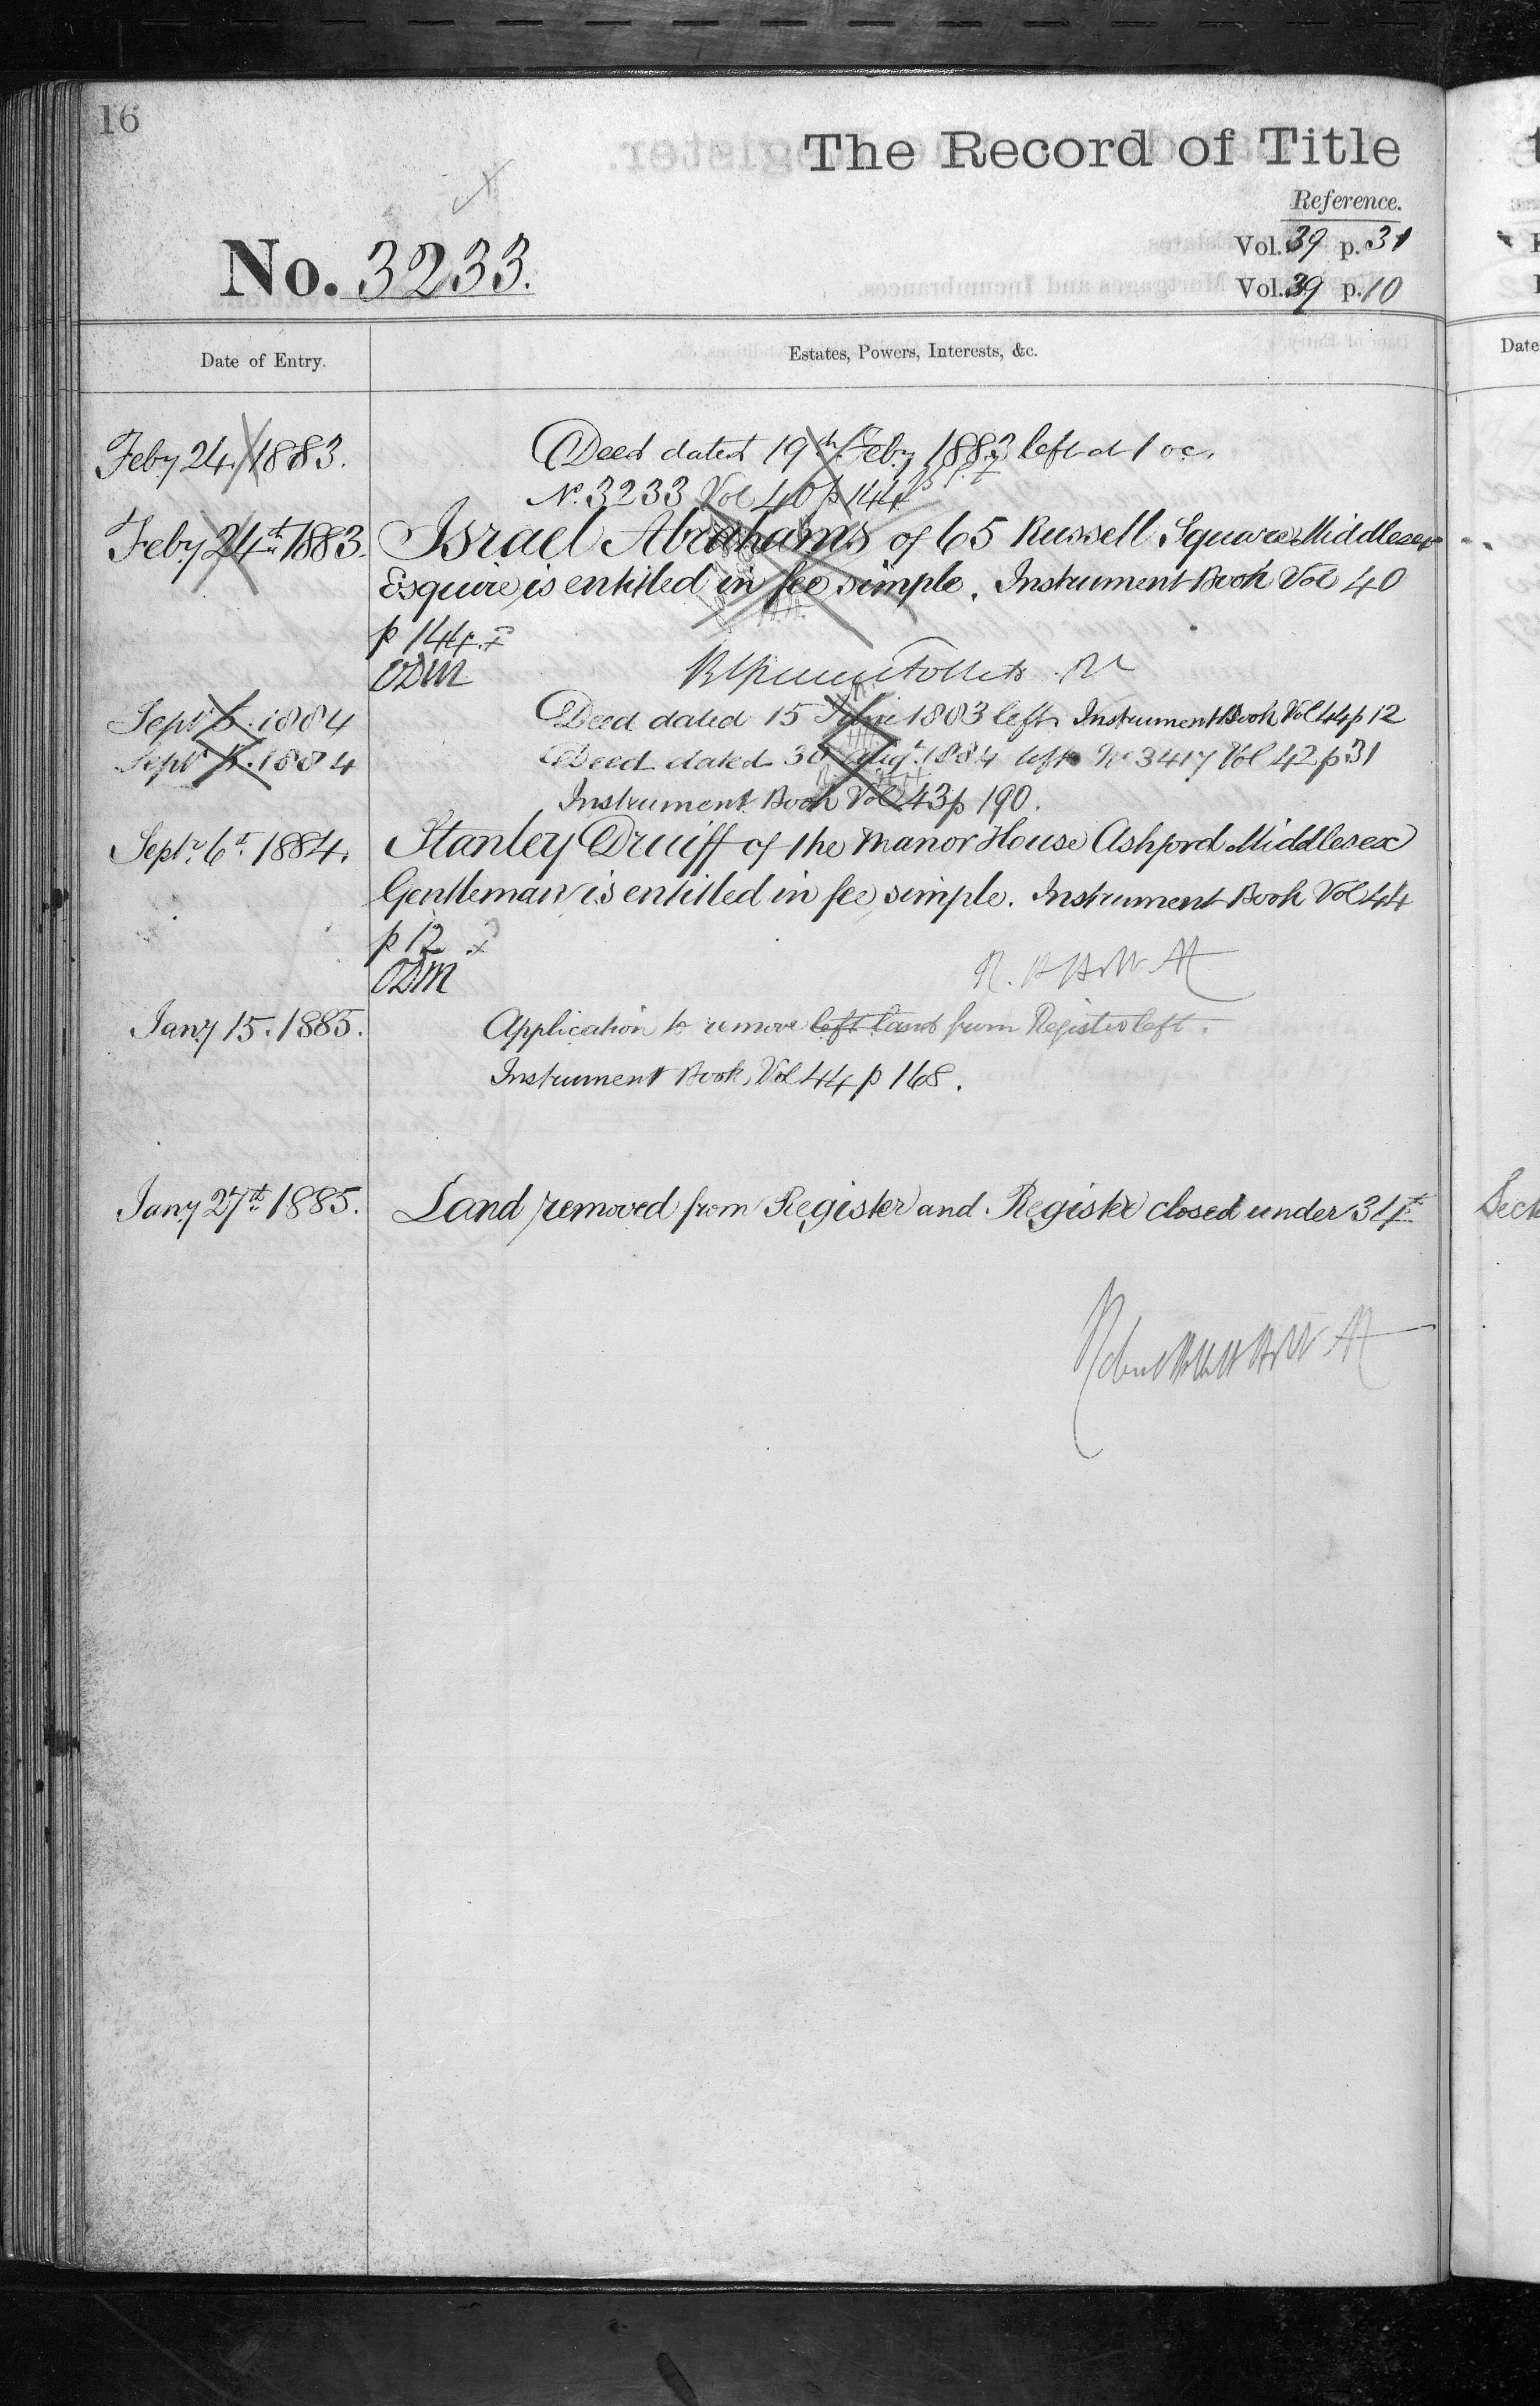 16
The Record of Title
Reference.
Vol. 39 p. 31
Vol. 39 p. 10
No. 3233.
Date of Entry.
Estates, Powers, Interests, &c.
Date
Feby 24. 1883. Deed dated 19th Feby 1883 left at 1 oc.
No. 3233 Vol 40 p 144
Feby 24th 1883. Israel Abrahams of 65 Russell Square Middlesex
Esquire is entitled in fee simple. Instrument Book Vol 40
p 144.
ODM
Septr 6. 1884 Deed dated 15 June 1883 left Instrument Book Vol 44 p 12
Septr 1884 Deed dated 30 Augt. 1884 left No 3417 Vol 42 p 31
Instrument Book Vol 43 p 190.
Septr. 6th. 1884. Stanley Druiff of the Manor House Ashford Middlesex
Gentleman is entitled in fee simple. Instrument Book Vol 44
p 12
ODM
Jany 15. 1885. Application to remove left land from Register left.
Instrument Book, Vol 44 p 168.
Jany 27th 1885. Land removed from Register and Register closed under 34th
Sect